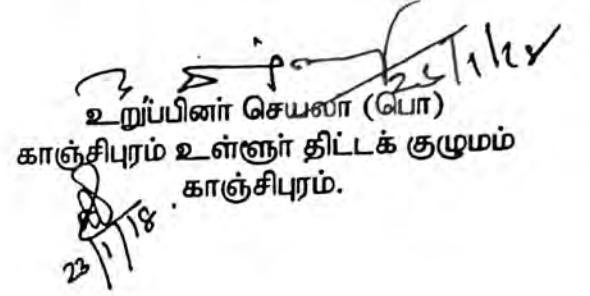 23/1/18
உறுப்பினர் செயலர் (பொ)
காஞ்சிபுரம் உள்ளூர் திட்டக் குழுமம்
காஞ்சிபுரம்.
23/1/18